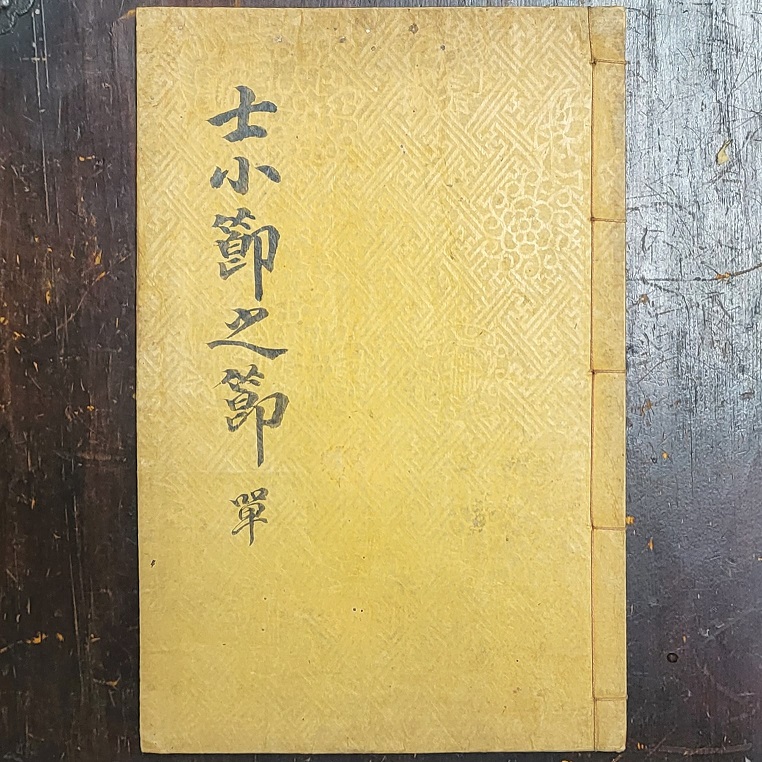 士小節之節 單